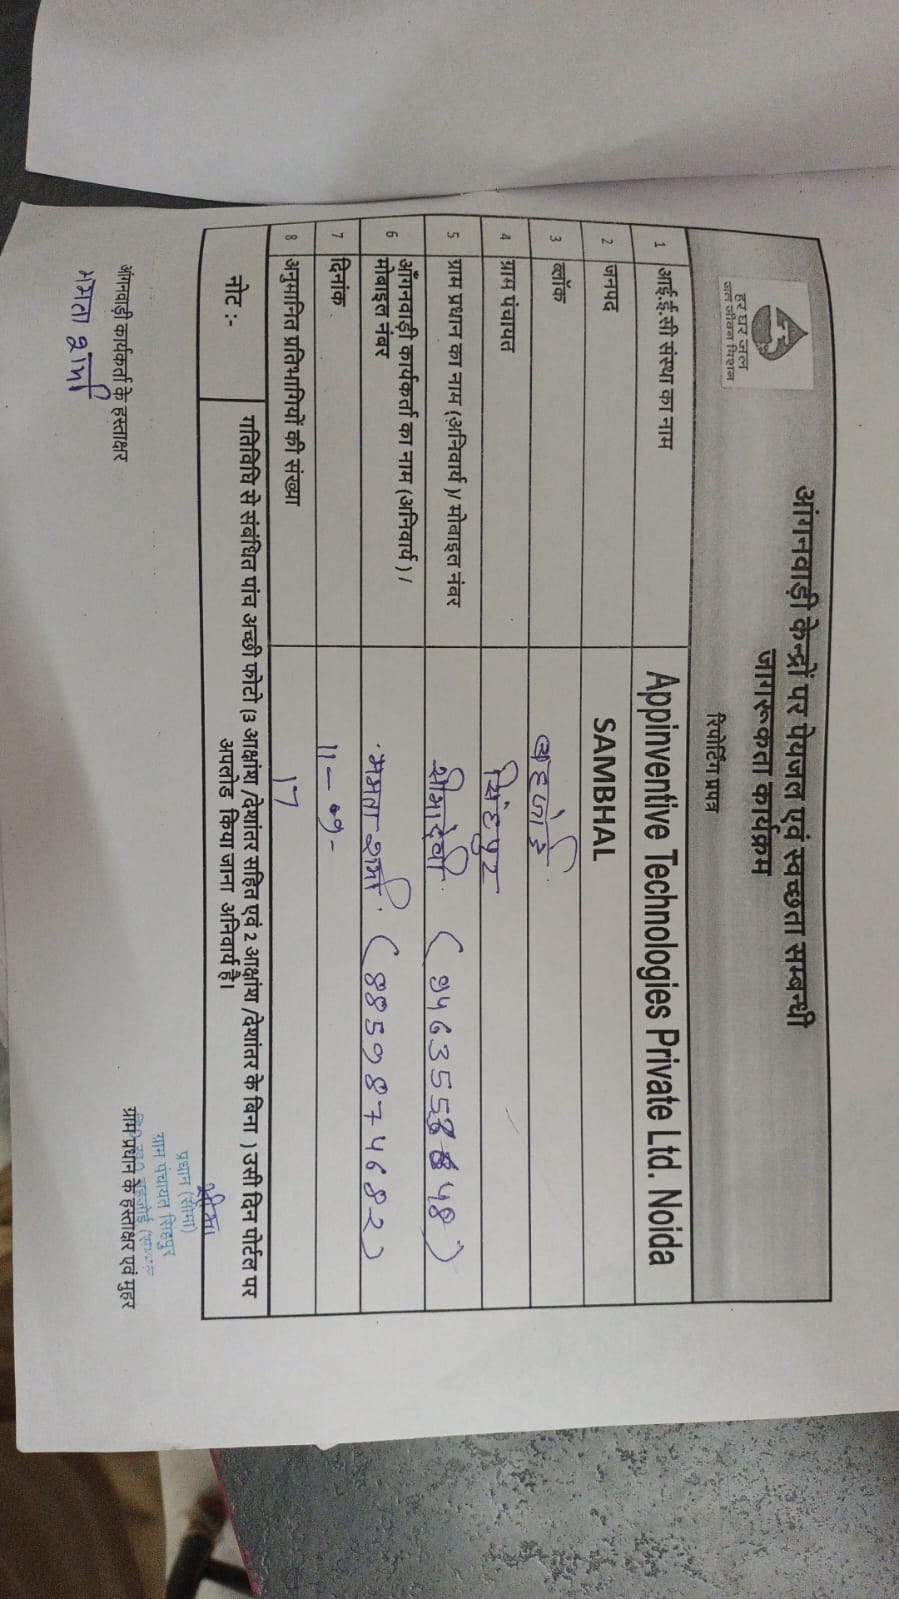 हर घर जल
जल जीवन मिशन
आंगनवाड़ी केन्द्रों पर पेयजल एवं स्वच्छता सम्बन्धी
जागरूकता कार्यक्रम
रिपोर्टिंग प्रपत्र
1 आई.ई.सी संस्था का नाम Appinventive Technologies Private Ltd. Noida
2 जनपद SAMBHAL
3 ब्लॉक बहजोई
4 ग्राम पंचायत सिंहपुर
5 ग्राम प्रधान का नाम (अनिवार्य )/ मोबाइल नंबर सीमा देवी
6 आँगनवाड़ी कार्यकर्ता का नाम (अनिवार्य ) /
मोबाइल नंबर ममता शर्मा (8859874682)
7 दिनांक 11-09-
8 अनुमानित प्रतिभागियों की संख्या 17
नोट :- गतिविधि से संबंधित पांच अच्छी फोटो (3 आक्षांष /देशांतर सहित एवं 2 आक्षांष /देशांतर के बिना ) उसी दिन पोर्टल पर
अपलोड किया जाना अनिवार्य है।
सीमा
प्रधान (सीमा)
ग्राम पंचायत सिंहपुर
आंगनवाड़ी कार्यकर्ता के हस्ताक्षर
ममता शर्मा
ग्राम प्रधान के हस्ताक्षर एवं मुहर